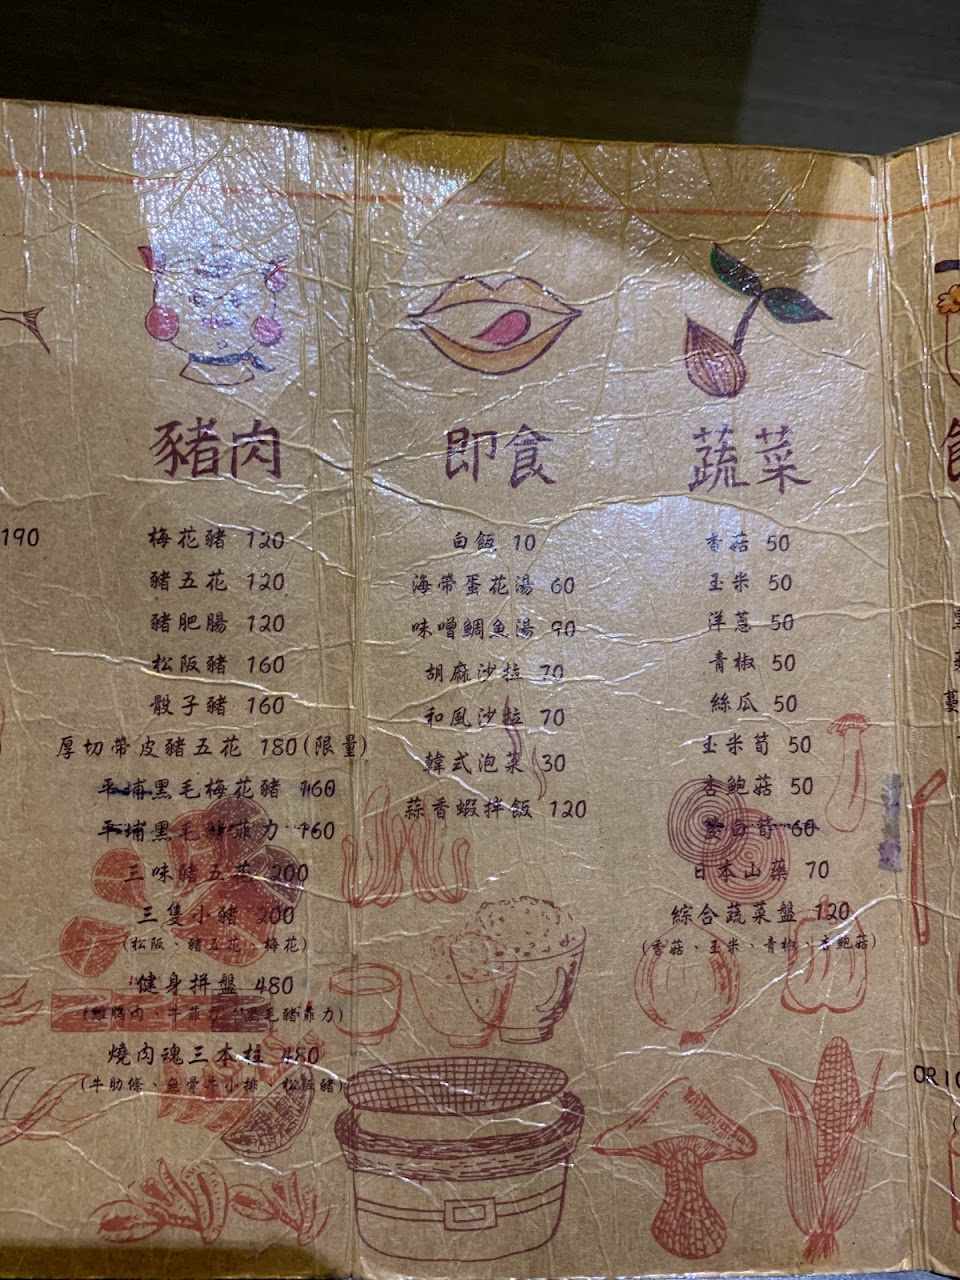 190
豬肉
梅花豬 120
豬五花 120
豬肥腸 120
松阪豬 160
骰子豬 160
厚切帶皮豬五花 180(限量)
平埔黑毛梅花豬 160
平埔黑毛豬菲力 160
三味豬五花 200
三隻小豬 200
(松阪、豬五花、梅花)
健身拼盤 480
(雞胸肉、牛菲力、黑毛豬菲力)
燒肉魂三本柱 480
(牛肋條、無骨牛小排、松阪豬)
即食
白飯 10
海帶蛋花湯 60
味噌鯛魚湯 90
胡麻沙拉 70
和風沙拉 70
韓式泡菜 30
蒜香蝦拌飯 120
蔬菜
香菇 50
玉米 50
洋蔥 50
青椒 50
絲瓜 50
玉米筍 50
杏鮑菇 50
茭白筍 60
日本山藥 70
綜合蔬菜盤 120
(香菇、玉米、青椒、杏鮑菇)